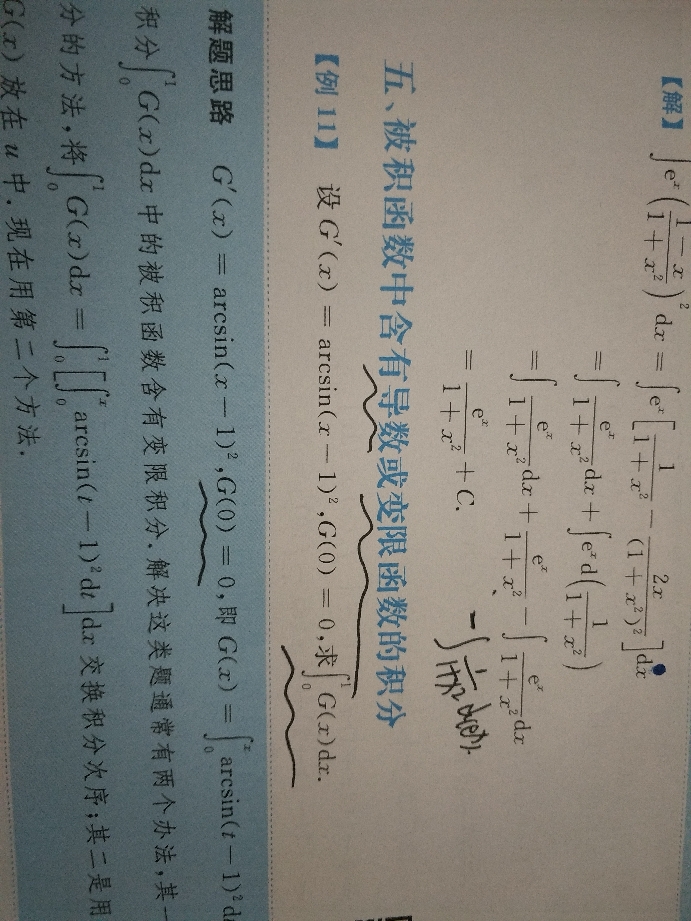 【解】 ∫eˣ((1−x)/(1+x²))²dx = ∫eˣ[1/(1+x²) − 2x/(1+x²)²]dx
= ∫eˣ/(1+x²)dx + ∫eˣd(1/(1+x²))
= ∫eˣ/(1+x²)dx + eˣ/(1+x²) − ∫eˣ/(1+x²)dx
= eˣ/(1+x²) + C.
−∫1/(1+x²)d(eˣ)
五、被积函数中含有导数或变限函数的积分
【例 11】 设 G′(x) = arcsin(x−1)²,G(0) = 0,求∫₀¹G(x)dx.
解题思路 G′(x) = arcsin(x−1)²,G(0) = 0,即 G(x) = ∫₀ˣarcsin(t−1)²d
积分∫₀¹G(x)dx 中的被积函数含有变限积分.解决这类题通常有两个办法,其一
分的方法,将∫₀¹G(x)dx = ∫₀¹[∫₀ˣarcsin(t−1)²dt]dx 交换积分次序;其二是用
G(x) 放在 u 中.现在用第二个方法.